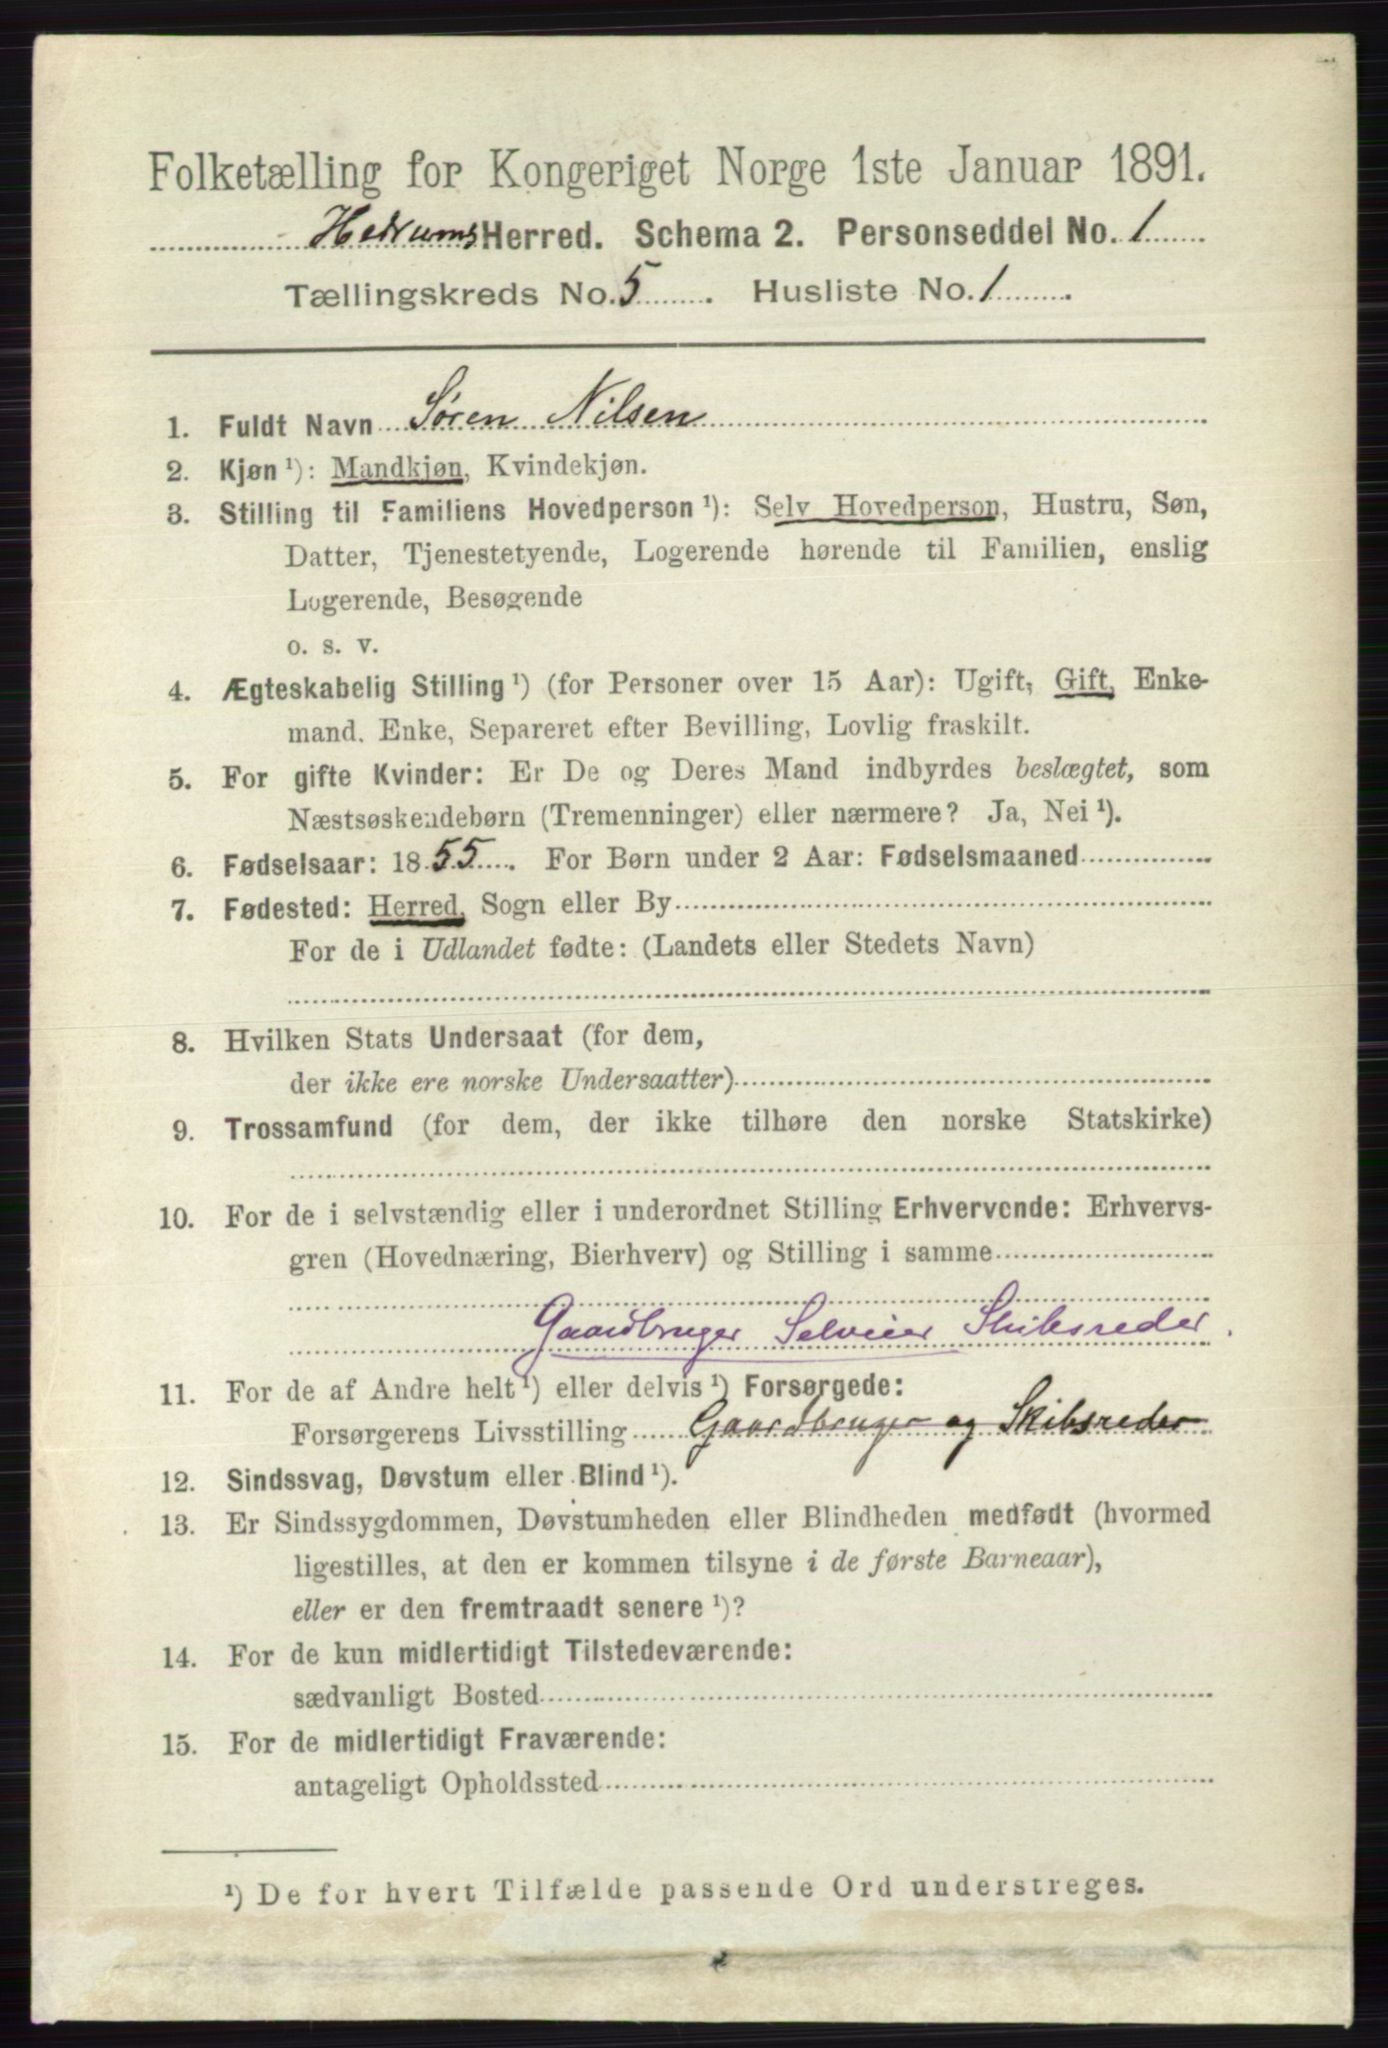 Folketælling for Kongeriget Norge 1ste Januar 1891.
Hedrums Herred. Schema 2. Personseddel No. 1
Tællingskreds No. 5. Husliste No. 1.
1. Fuldt Navn Søren Nilsen
2. Kjøn ¹): Mandkjøn, Kvindekjøn.
3. Stilling til Familiens Hovedperson ¹): Selv Hovedperson, Hustru, Søn,
Datter, Tjenestetyende, Logerende hørende til Familien, enslig
Logerende, Besøgende
o. s. v.
4. Ægteskabelig Stilling ¹) (for Personer over 15 Aar): Ugift, Gift, Enke-
mand. Enke, Separeret efter Bevilling, Lovlig fraskilt.
5. For gifte Kvinder: Er De og Deres Mand indbyrdes beslægtet, som
Næstsøskendebørn (Tremenninger) eller nærmere? Ja, Nei ¹).
6. Fødselsaar: 1855. For Børn under 2 Aar: Fødselsmaaned
7. Fødested: Herred, Sogn eller By
For de i Udlandet fødte: (Landets eller Stedets Navn)
8. Hvilken Stats Undersaat (for dem,
der ikke ere norske Undersaatter)
9. Trossamfund (for dem, der ikke tilhøre den norske Statskirke)
10. For de i selvstændig eller i underordnet Stilling Erhvervende: Erhvervs-
gren (Hovednæring, Bierhverv) og Stilling i samme
Gaardbruger Selveier Skibsreder.
11. For de af Andre helt ¹) eller delvis ¹) Forsørgede:
Forsørgerens Livsstilling Gaardbruger og Skibsreder
12. Sindssvag, Døvstum eller Blind ¹).
13. Er Sindssygdommen, Døvstumheden eller Blindheden medfødt (hvormed
ligestilles, at den er kommen tilsyne i de første Barneaar),
eller er den fremtraadt senere ¹)?
14. For de kun midlertidigt Tilstedeværende:
sædvanligt Bosted
15. For de midlertidigt Fraværende:
antageligt Opholdssted
¹) De for hvert Tilfælde passende Ord understreges.